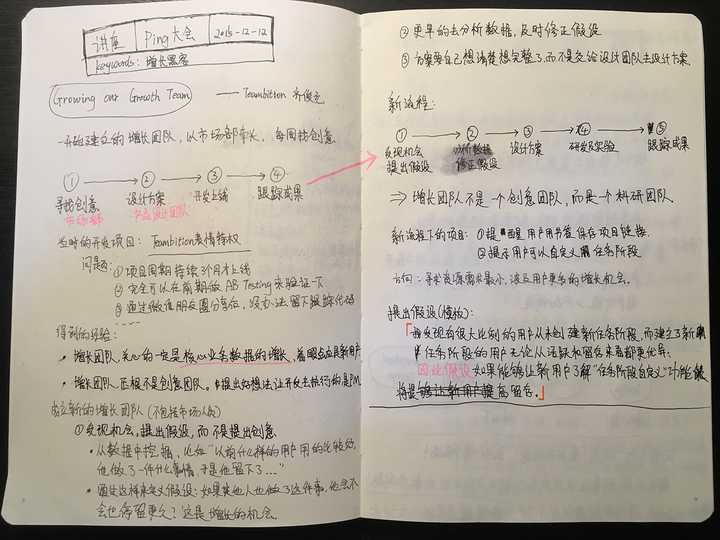 讲座 Ping大会 2015-12-12
keywords: 增长黑客
Growing our Growth Team —— Teambition 齐俊元
一开始建立的增长团队，以市场部牵头，每周找创意
① → ② → ③ → ④
寻找创意 设计方案 开发上线 跟踪成果
市场部 交给设计团队
当时的开发项目：Teambition表情特权
问题：①项目周期持续3个月才上线
②完全可以在前期做AB Testing实验证一下
③通过微信朋友圈分享后，没办法留下跟踪代码
得到的经验：
· 增长团队，关心的一定是核心业务数据的增长，着眼点应是新用户
· 增长团队，压根不是创意团队。提出好想法让开发去执行的是PM
成立新的增长团队（不包括市场人员）
①发现机会，提出假设，而不是提出创意
· 从数据中挖掘，比如“以前什么样的用户用的比较好，
他做了一件什么事情，于是他留下了…”
· 通过这样来定义假设：如果其他人也做了这件事，他会不
会也停留更久？这是增长的机会。
② 更早的去分析数据，及时修正假设
③ 方案要自己想清楚想完整了，而不是交给设计团队去设计方案
新流程：
① → ② → ③ → ④ → ⑤
发现机会 分析数据 设计方案 研发及实验 跟踪成果
提出假设 修正假设
⇒ 增长团队不是一个创意团队，而是一个科研团队
新流程下的项目：①提醒用户用书签保存项目链接
②提示用户可以自定义任务阶段
方向：寻求资源需求最小，波及用户更多的增长机会。
提出假设（模板）：
「我发现有很大比例的用户从未创建新任务阶段，而建立了新
任务阶段的用户无论从活跃和留存来看都更优异。
因此假设 如果能够让新用户了解“任务阶段自定义”功能
将提高留存。」